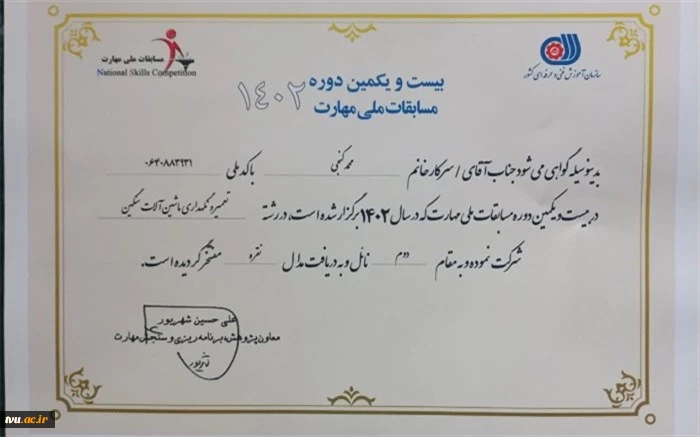 مسابقات ملی مهارت
National Skills Competition
سازمان آموزش فنی و حرفه‌ای کشور
بیست و یکمین دوره
مسابقات ملی مهارت
۱۴۰۲
بدینوسیله گواهی می شود جناب آقای / سرکار خانم محمد گنجی با کد ملی ۰۶۴۰۸۸۳۹۳۱
در بیست و یکمین دوره مسابقات ملی مهارت که در سال ۱۴۰۲ برگزار شده است، در رشته تعمیر و نگهداری ماشین آلات سنگین
شرکت نموده و به مقام دوم نائل و به دریافت مدال نقره مفتخر گردیده است.
علی حسین شهریور
معاون پژوهش، برنامه ریزی و سنجش مهارت
tvu.ac.ir